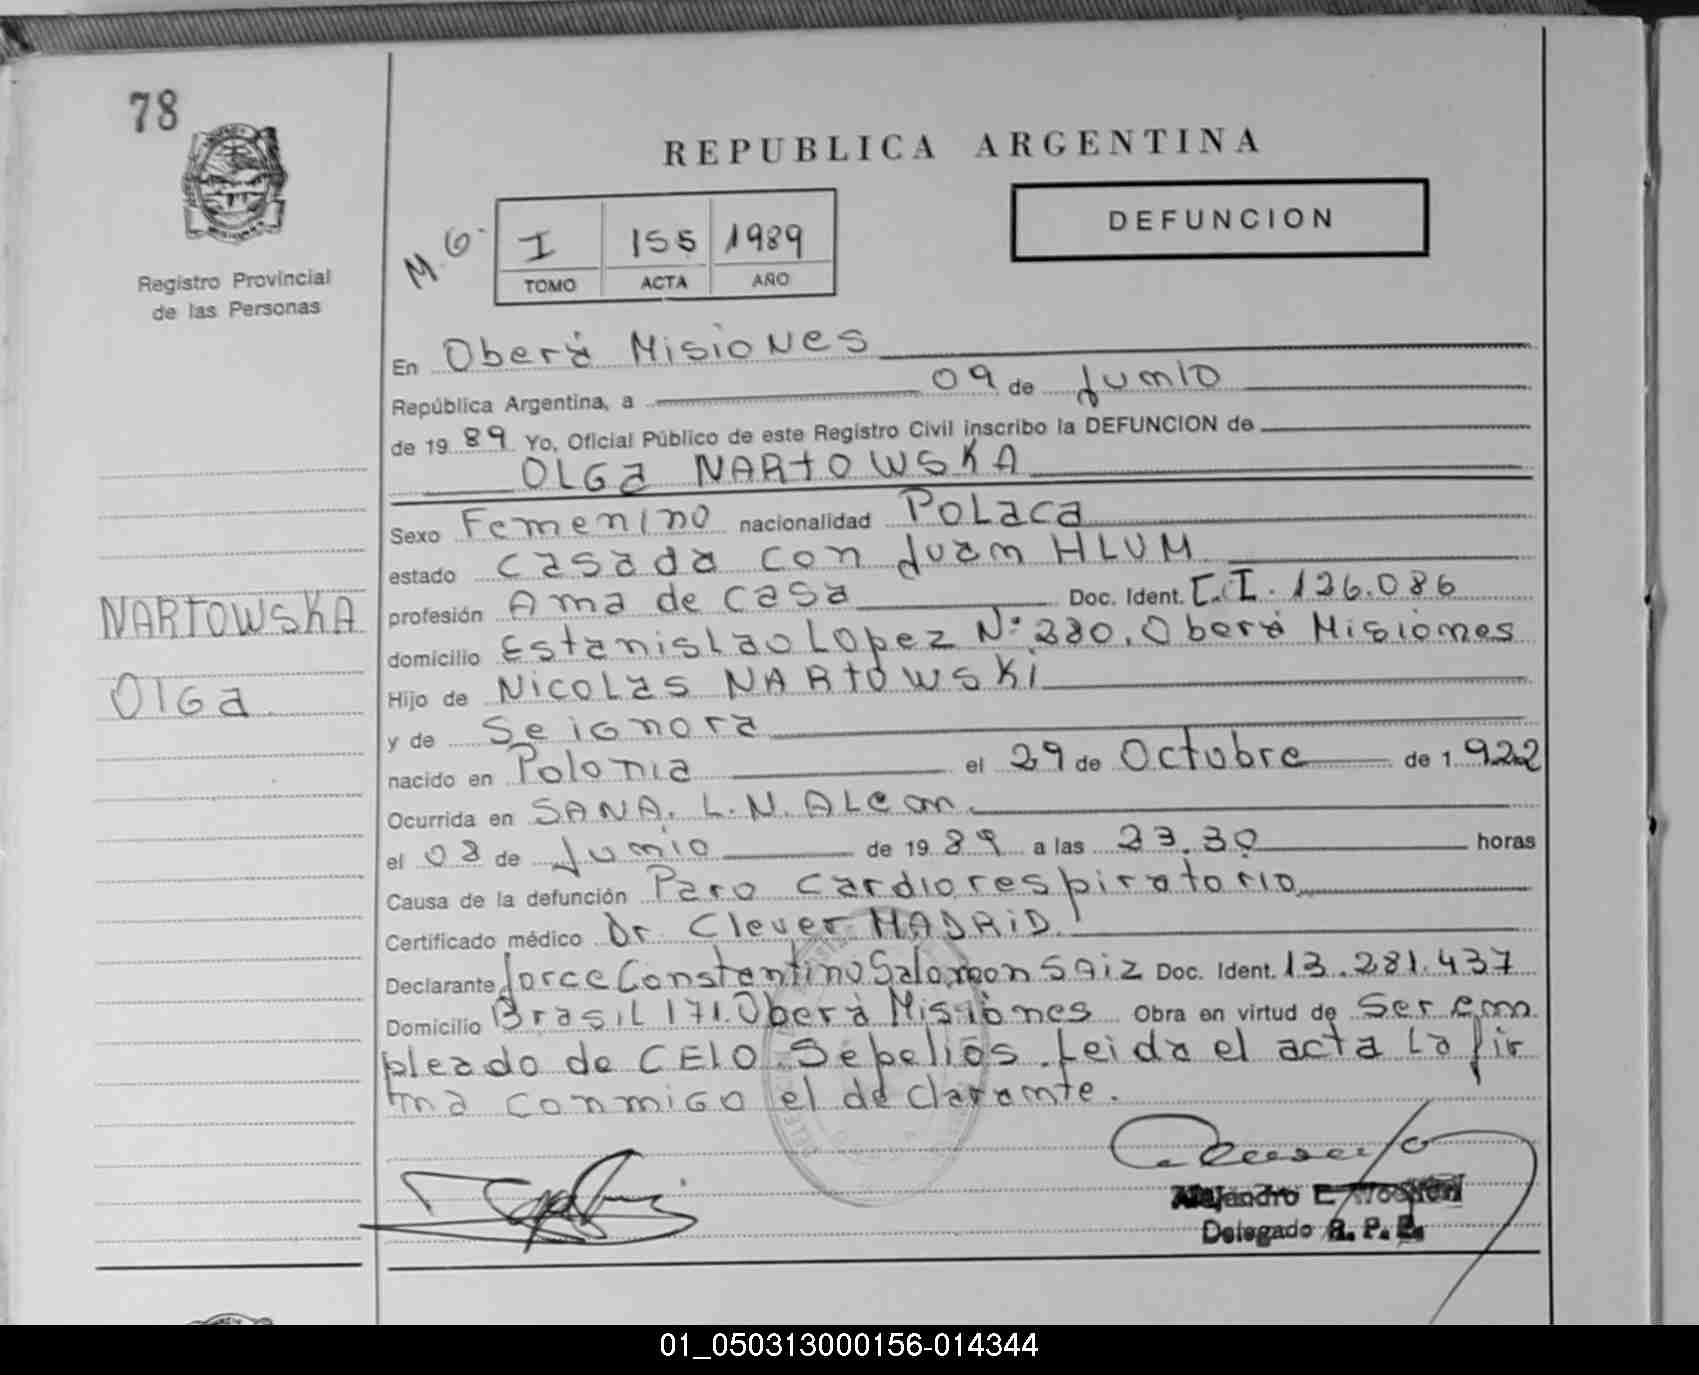 78
REPUBLICA ARGENTINA
DEFUNCION
M.G.
I 155 1989
TOMO ACTA AÑO
Registro Provincial
de las Personas
En Oberá Misiones
República Argentina, a 09 de Junio
de 1989 Yo, Oficial Público de este Registro Civil inscribo la DEFUNCION de
OLGa NARTOWSKA
Sexo Femenino nacionalidad POLaca
estado casada con Juan HLUM
profesión Ama de casa Doc. Ident. C.I. 126.086
domicilio Estanislao Lopez N° 280. Oberá Misiones
Hijo de Nicolas NARTOWSKi
y de Se ignora
nacido en Polonia el 29 de Octubre de 1.922
Ocurrida en SANA. L.N. ALem
el 08 de Junio de 1989 a las 23.30 horas
Causa de la defunción Paro cardiorespiratorio
Certificado médico Dr. Clever MADRiD
Declarante Jorge Constantino Salomon SAiz Doc. Ident. 13.281.437
Domicilio Brasil 171. Oberá Misiones Obra en virtud de Ser em
pleado de CELO Sepelios. Leida el acta la fir
ma conmigo el declarante.
NARTOWSKA
Olga
Alejandro E.
Delegado R. P. P.
01_050313000156-014344